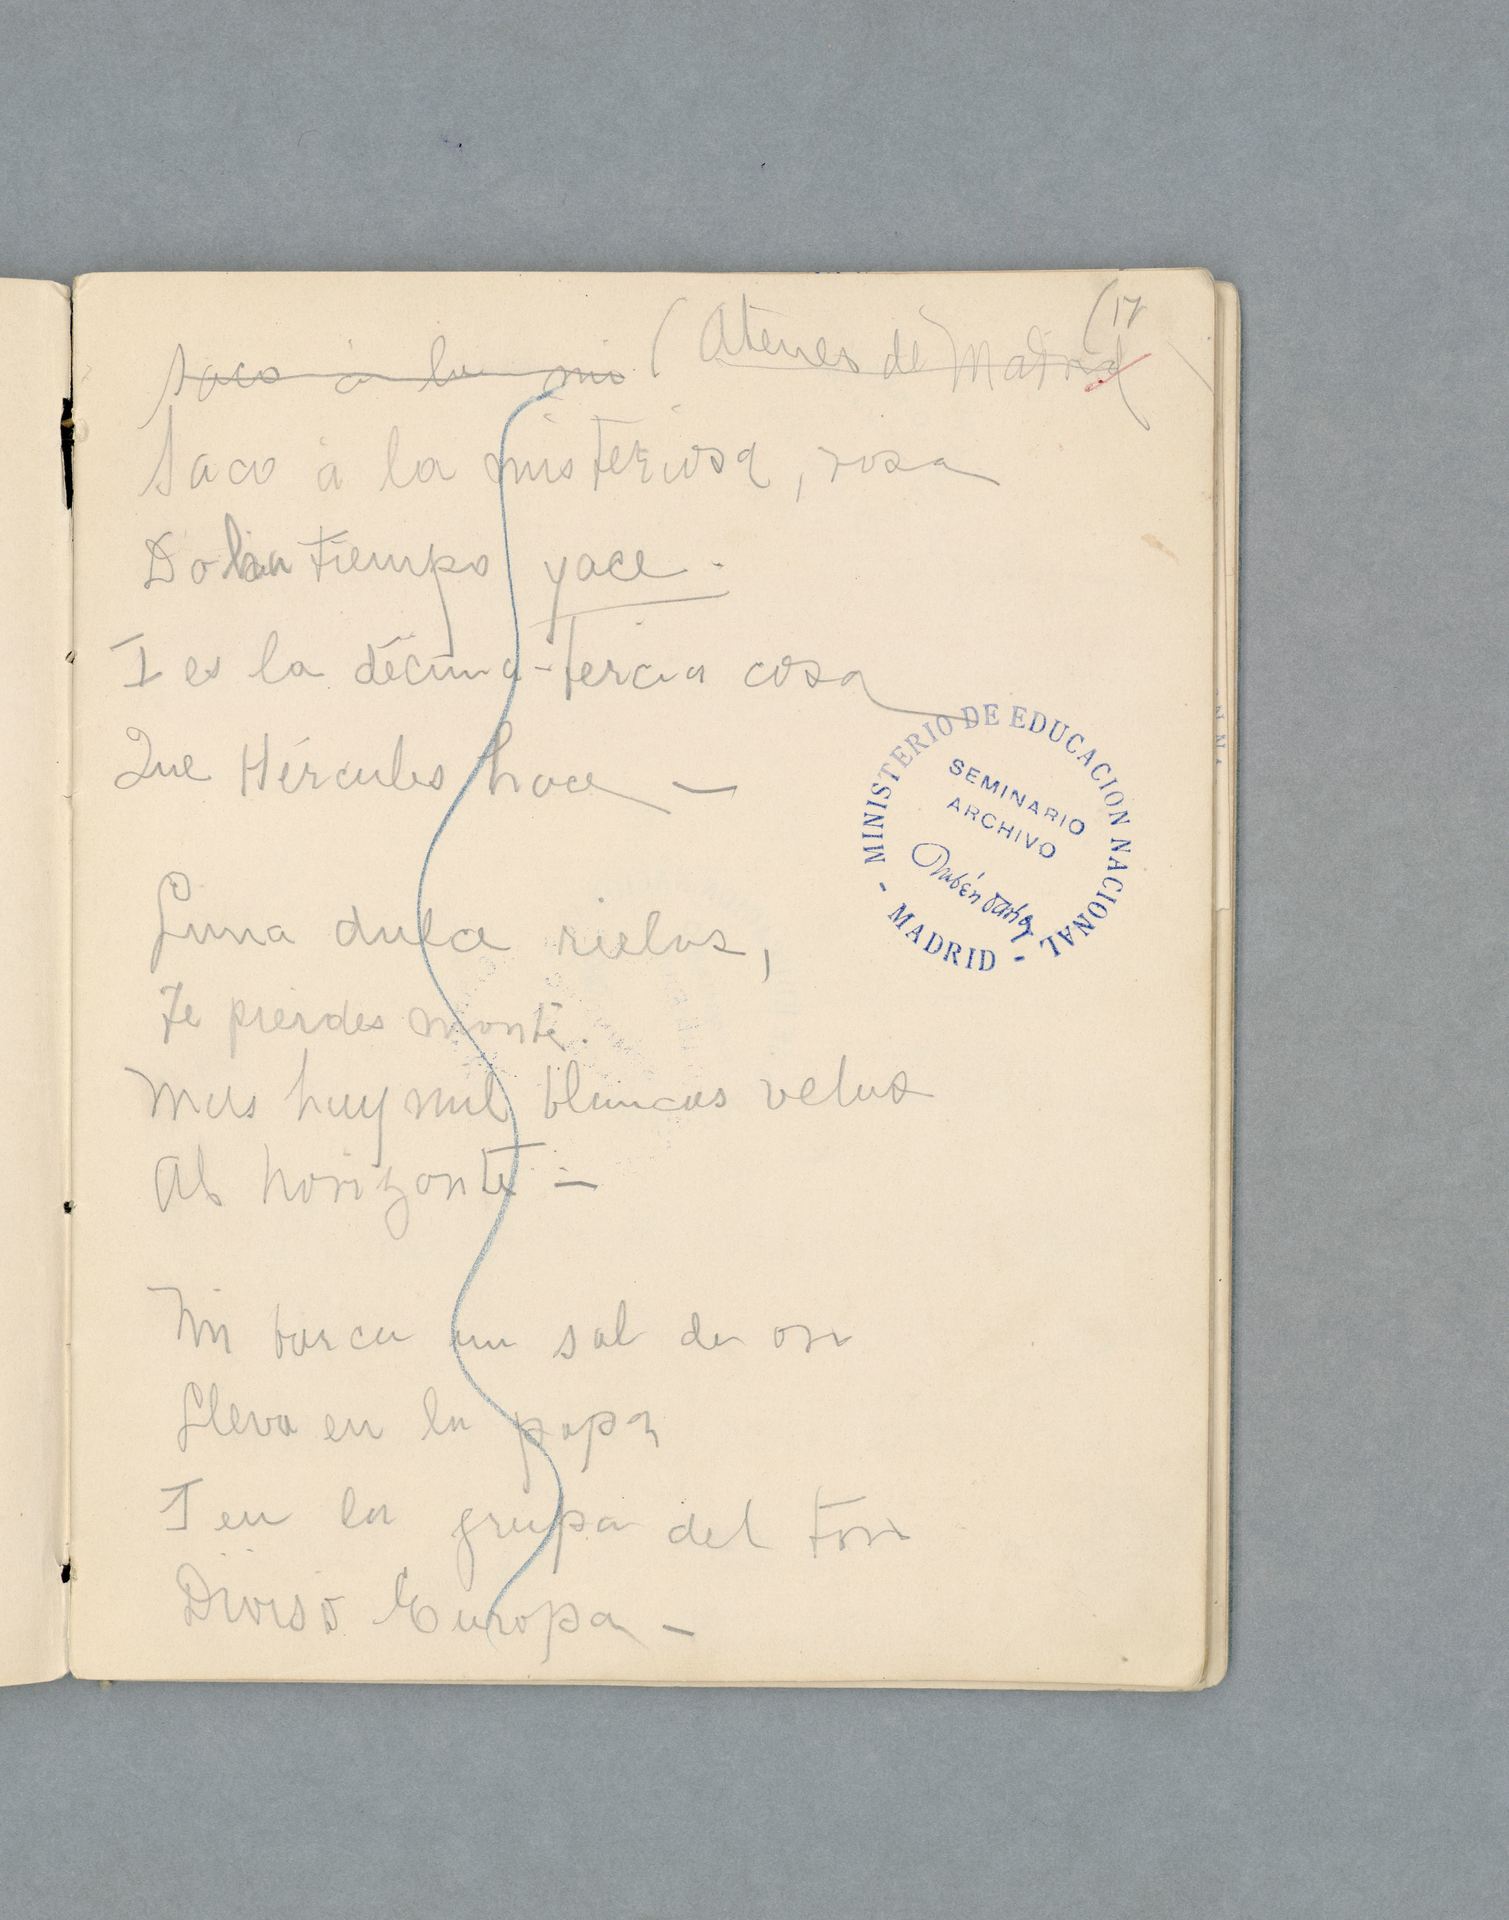 (17
~~saco á la mis~~ (Ateneo de Madrid
Saco á la misteriosa, rosa
Do tiempo yace.
I es la décima-tercia cosa
Que Hércules hace —
MINISTERIO DE EDUCACION NACIONAL
- MADRID -
SEMINARIO
ARCHIVO
Rubén Darío
Luna dulce rielas,
Te pierdes monte.
Mas hay mil blancas velas
Al horizonte —
Mi barca un sol de oro
Lleva en la popa
I en la grupa del toro
Diviso Europa —